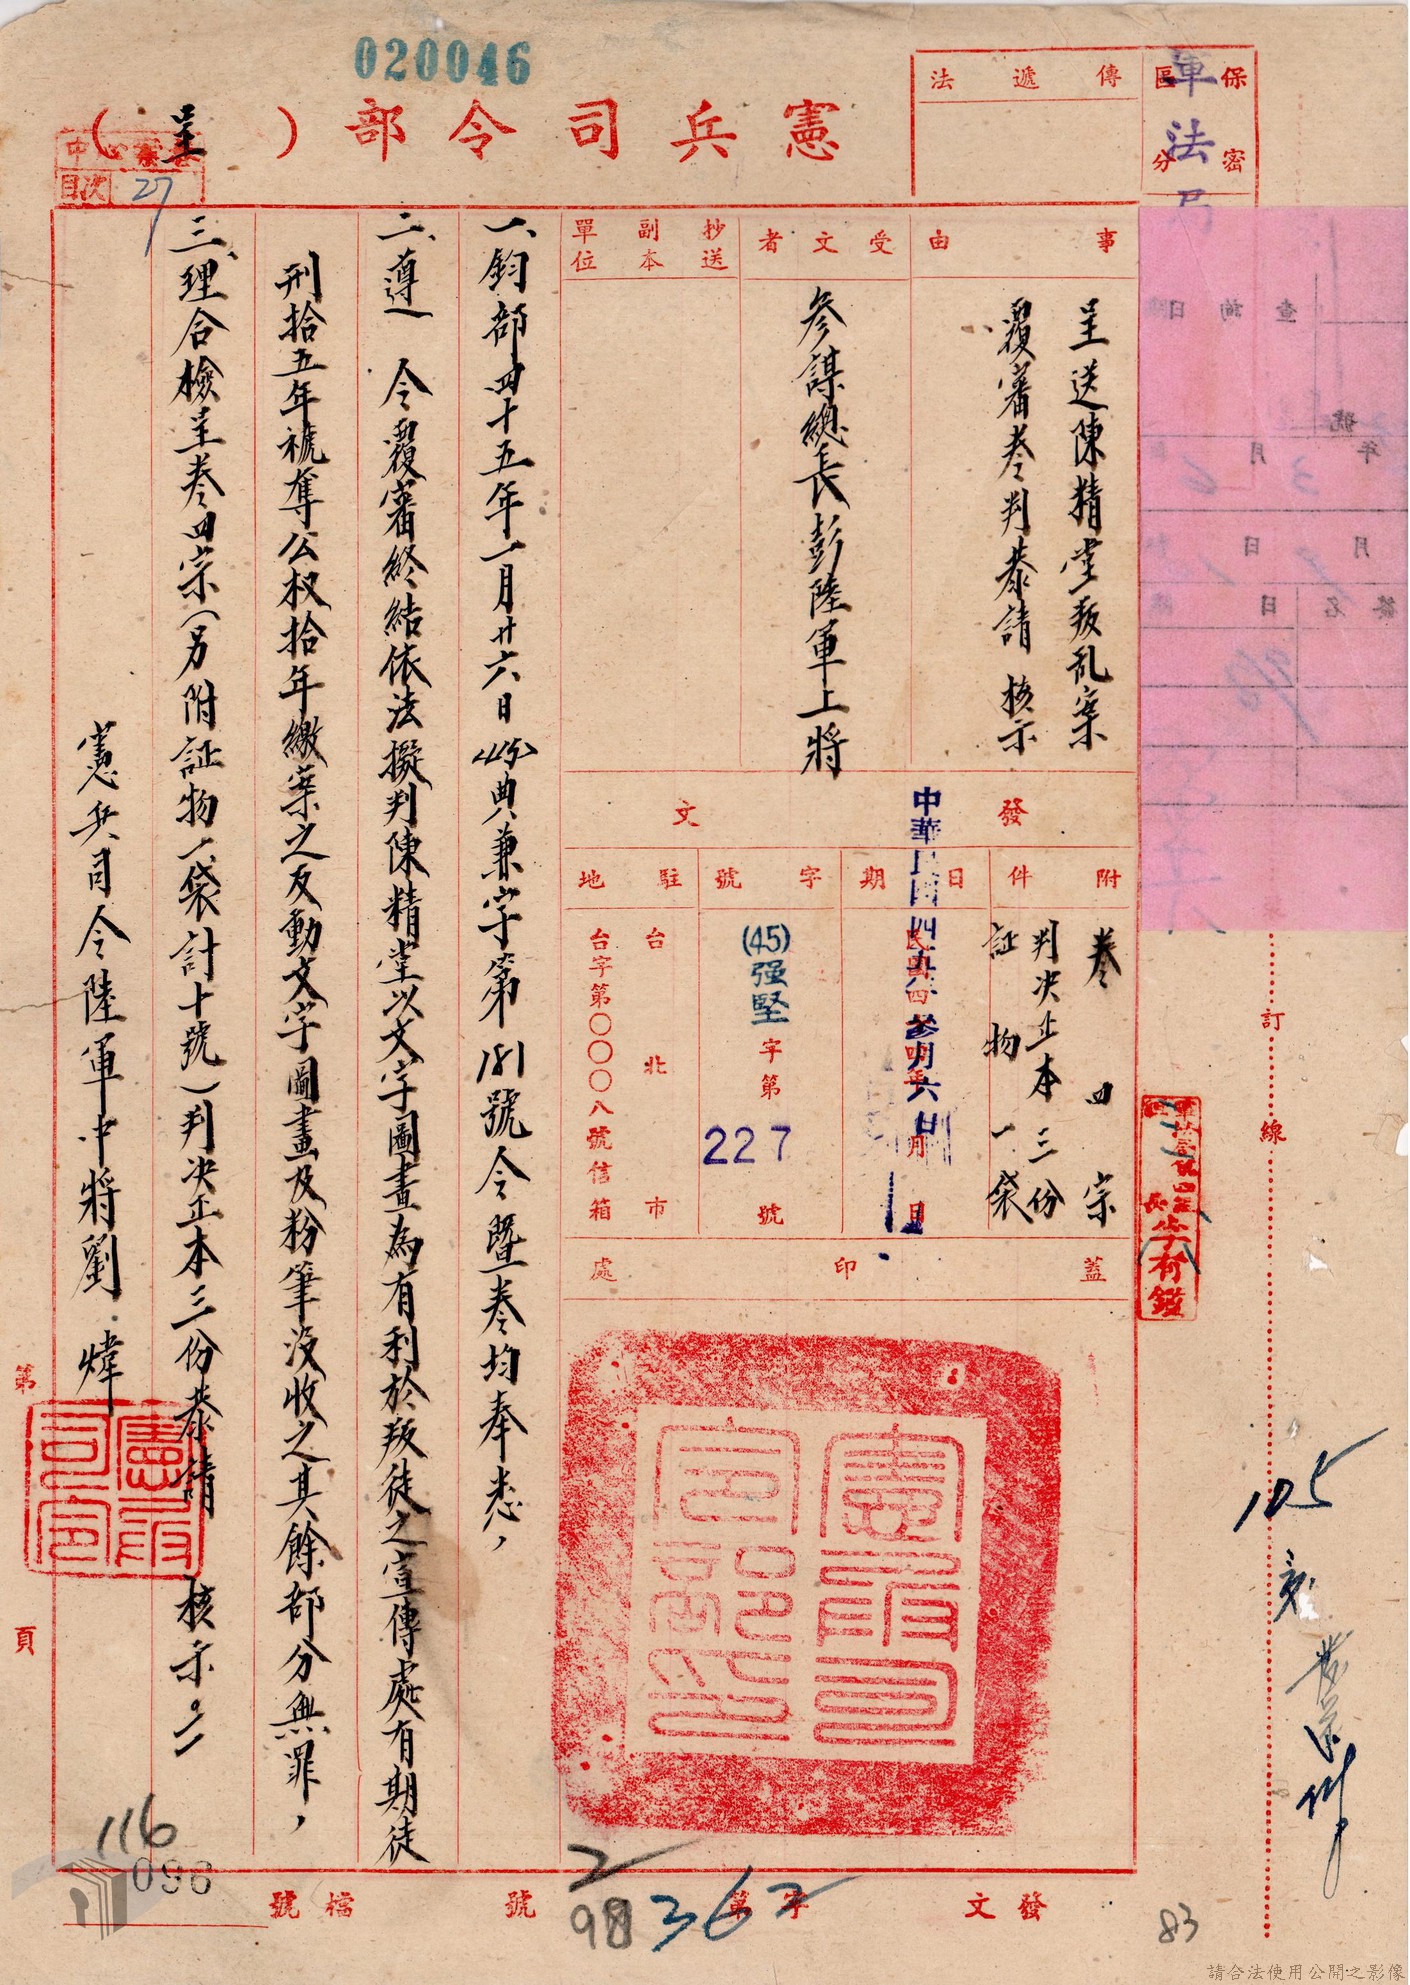 020046
憲兵司令部（呈）
保密區分
軍法局
傳遞法
目次 27
事由
呈送陳精堂叛乱案
覆審卷判恭請 核示
受文者
參謀總長彭陸軍上將
抄送副本單位
發文
附件
卷四宗
判決正本三份
証物一袋
日期
中華民國四五年參月六日
字號
(45)强堅字第227號
駐地
台北市
台字第〇〇〇八號信箱
蓋印處
憲兵司令部印
一、鈞部四十五年一月廿六日典兼字第181號令暨卷均奉悉，
二、遵 令覆審終結依法擬判陳精堂以文字圖畫為有利於叛徒之宣傳處有期徒
刑拾五年褫奪公权拾年繳案之反動文字圖畫及粉筆沒收之其餘部分無罪，
三、理合檢呈卷四宗（另附証物一袋計十號）判決正本三份恭請 核示。
憲兵司令陸軍中將劉煒
第
頁
訂線
105
116
096
發文字第 號
2
98
362
檔號
83
請合法使用公開之影像